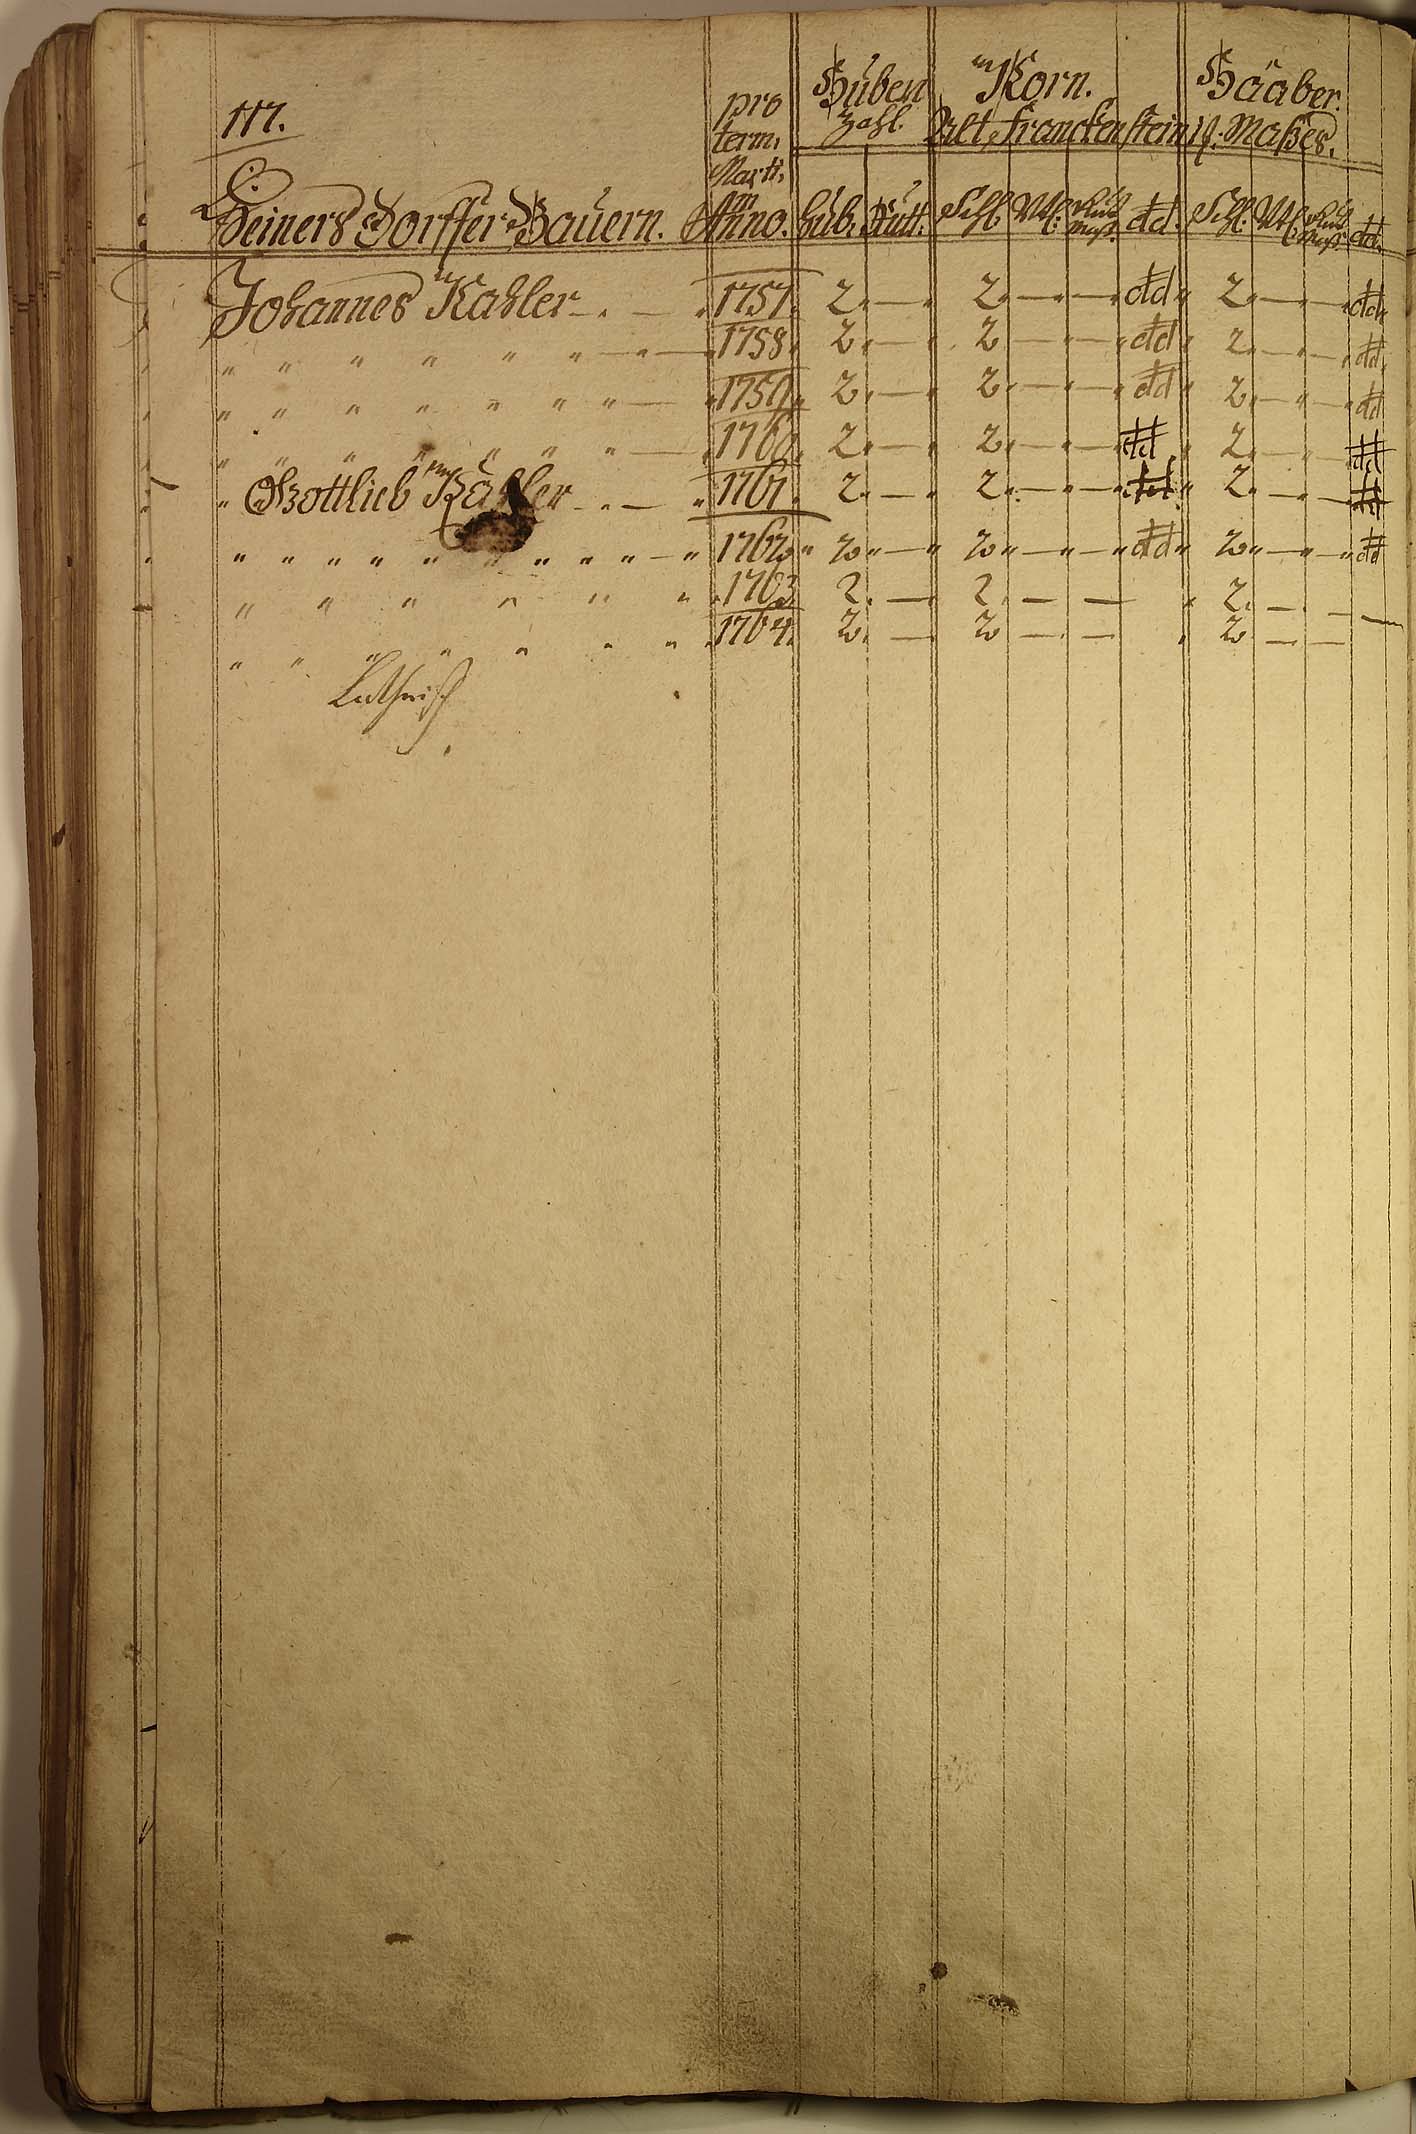 117.
pro term. Marti. in Anno.
Huben Zahl.
Korn.
Haaber.
Alt Franckensteinis. Maßes.
Heiners Dorffer Bauern.
Hub. Rutt. Schl. Vtl. dd. Schl. Vtl. dd.
Johannes Kahler - . — . 1757. 2. — . 2. — . — . dd " 2. — . — . dd
" " " " " " — " — . 1758. 2. — . 2 — . — . dd " 2. — . — . dd
" " " " " " " — " 1759. 2. — . 2. — . — . dd " 2. — " — . dd
" " " " " " " — . 1760. 2. — . 2. — . — . dd . 2. — . — . dd
" Gottlieb Kahler - . — " 1761. 2. — . 2. — . — . dd " 2. — . — dd
" " " " " " " " " " — " 1762 " 2 " — " 2 " — " — " dd " 2 " — " — " dd
" " " " " " . 1763. 2. — . 2. — — " 2. — . —
" " " " " " " . 1764. 2. — 2 — . — . 2 — —
Lutherisch